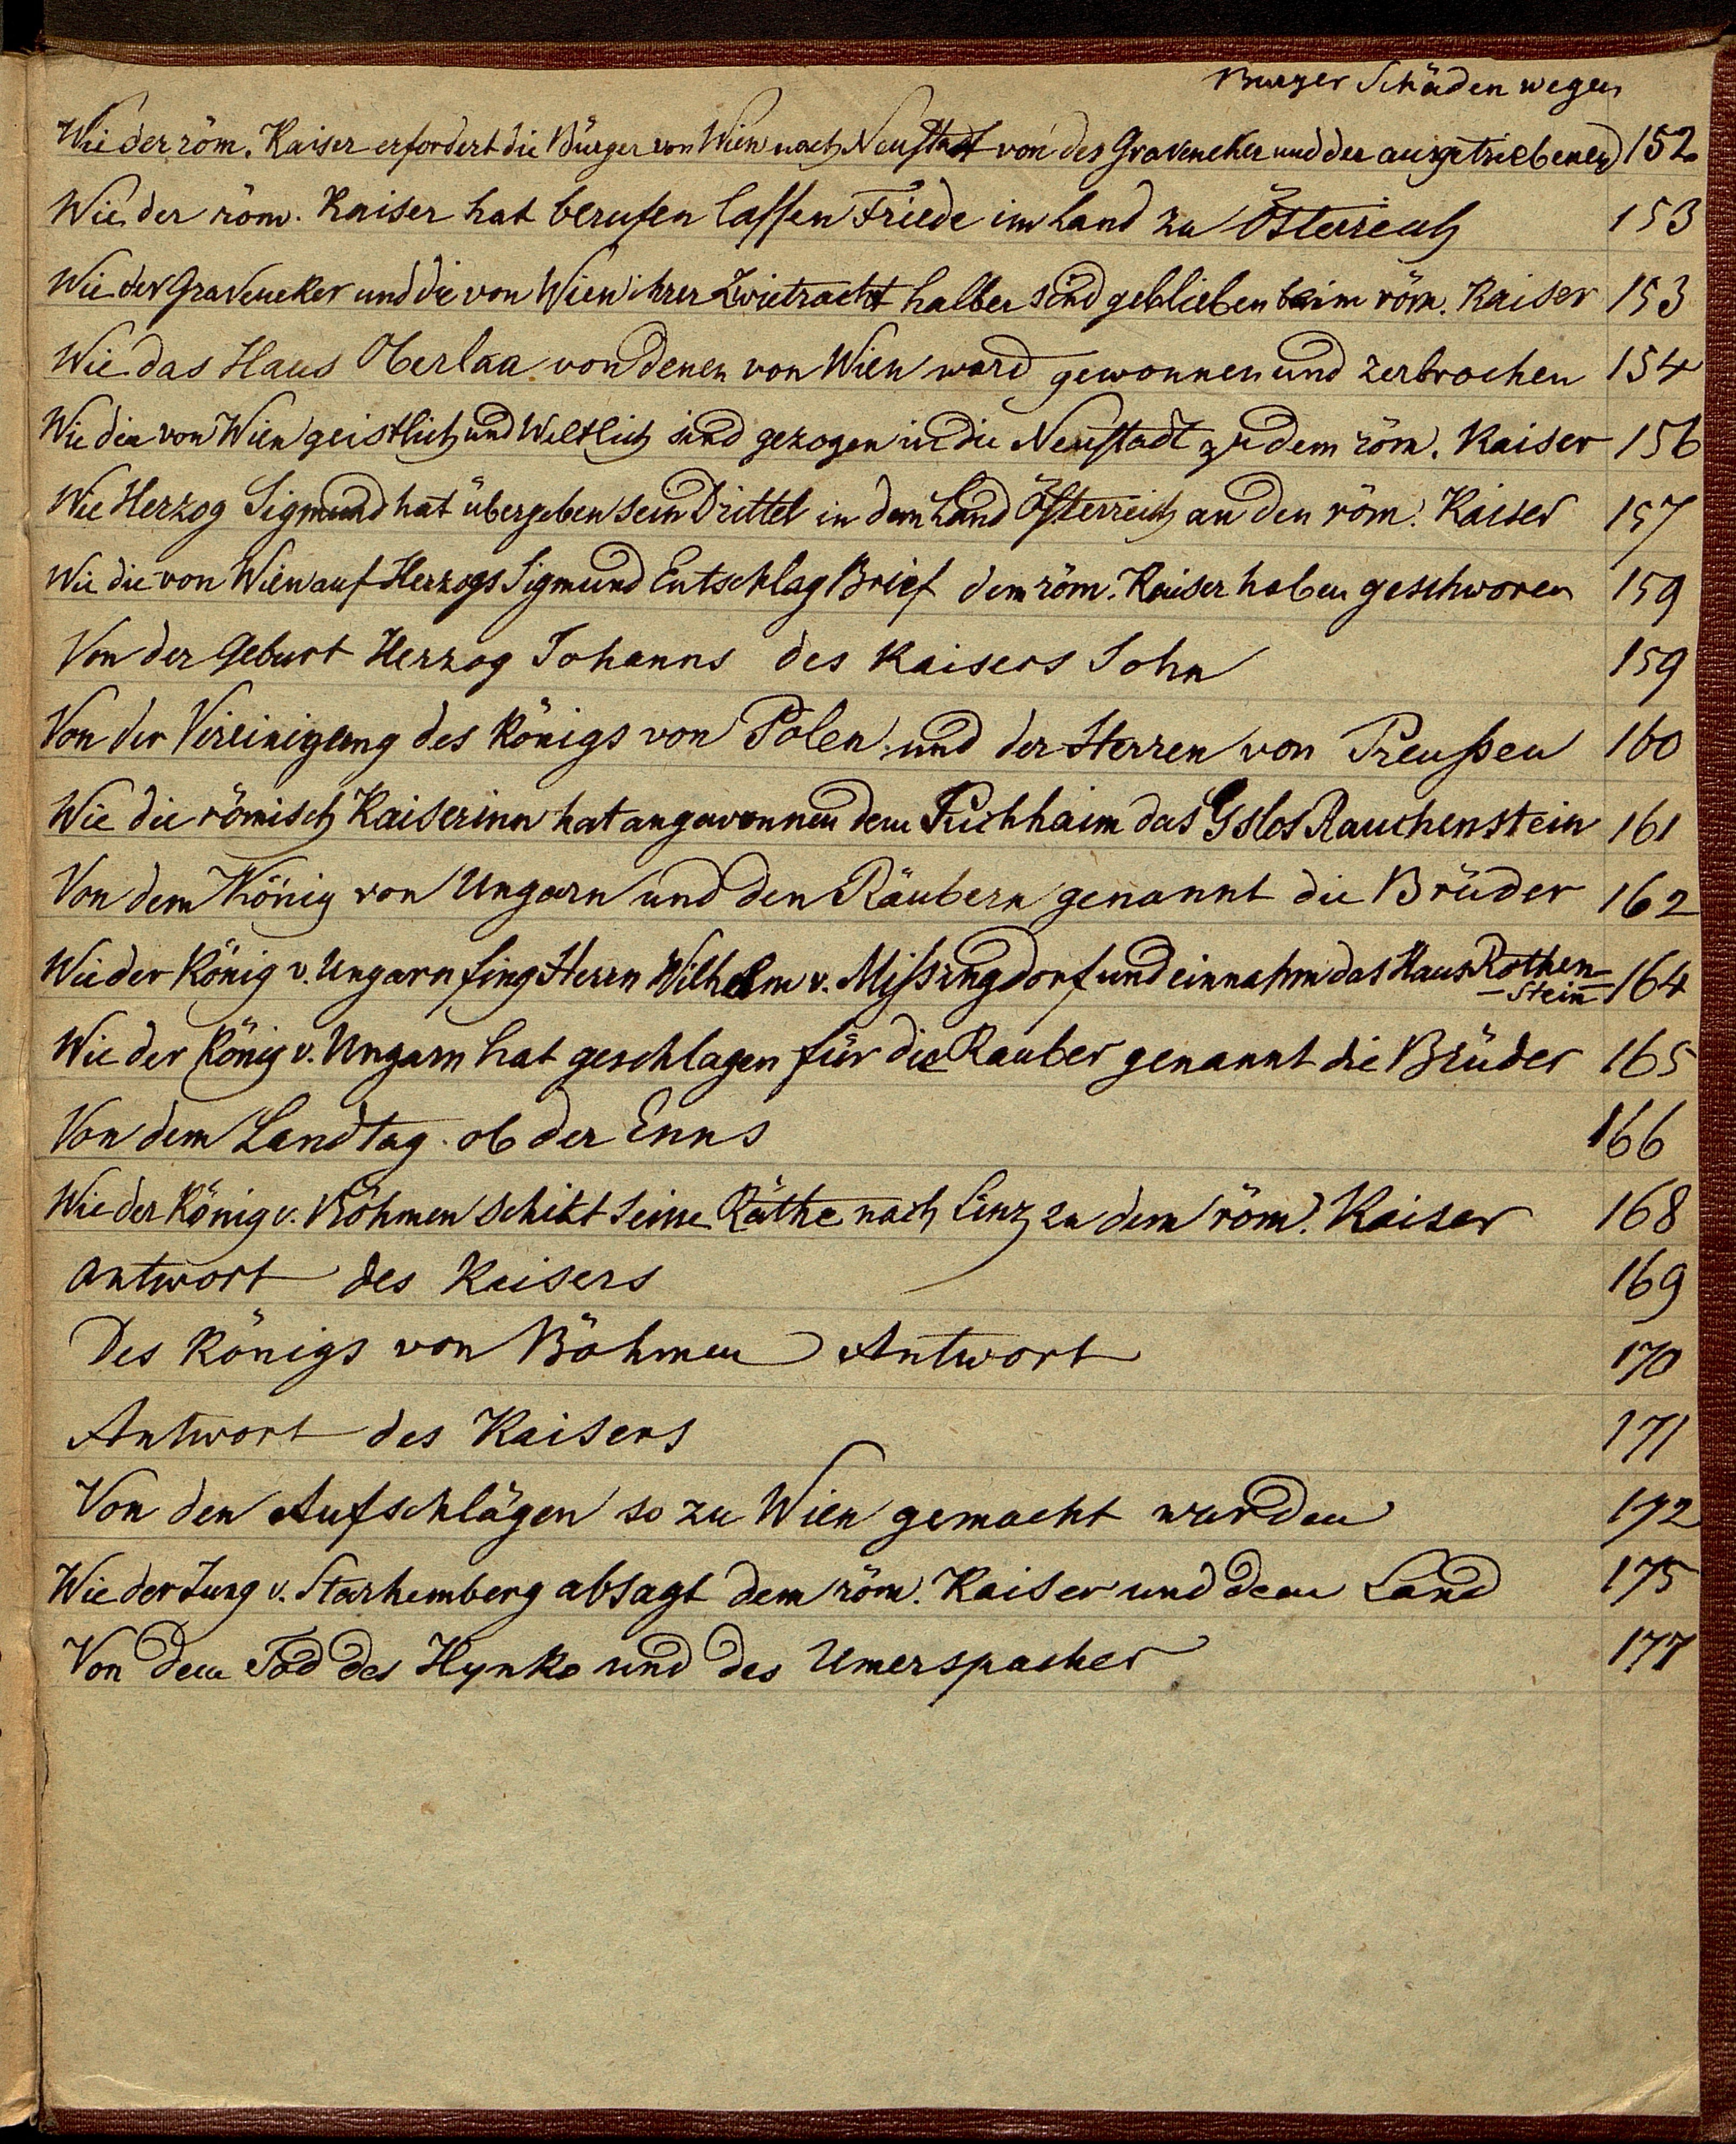 Burger Schäden wegen
Wie der röm. Kaiser erfordert die Bürger von Wien nach Neustadt von des Graveneker und der ausgetriebenen 152
Wie der röm. Kaiser hat berufen lassen Friede im Land zu Österreich 153
Wie der Graveneker und die von Wien ihrer Zwietracht halber sind geblieben beim röm. Kaiser 153
Wie das Haus Oberlaa von denen von Wien ward gewonnen und zerbrochen 154
Wie die von Wien geistlich und Weltlich sind gezogen in die Neustadt zu dem röm. Kaiser 156
Wie Herzog Sigmund hat übergeben sein Drittel in dem Land Österreich an den röm. Kaiser 157
Wie die von Wien auf Herzogs Sigmund Entschlag Brief dem röm. Kaiser haben geschworen 159
Von der Geburt Herzog Johanns des Kaisers Sohn 159
Von der Vereinigung des Königs von Polen und der Herren von Preußen 160
Wie die römisch Kaiserinn hat angewonnen dem Puchhaim das Gslos Rauchenstein 161
Von dem König von Ungarn und den Räubern genannt die Brüder 162
Wie der König v. Ungarn fing Herrn Wilhelm v. Mißingdorf und einnahm das Haus Rothen- 164
-stein
Wie der König v. Ungarn hat geschlagen für die Rauber genannt die Brüder 165
Von dem Landtag ob der Enns 166
Wie der König v. Böhmen schikt seine Räthe nach Linz zu dem röm. Kaiser 168
Antwort des Kaisers 169
Des Königs von Böhmen Antwort 170
Antwort des Kaisers 171
Von den Aufschlägen so zu Wien gemacht wurden 172
Wie der Jung v. Starhemberg absagt dem röm. Kaiser und dem Land 175
Von dem Tod des Hynko und des Umerspacher 177